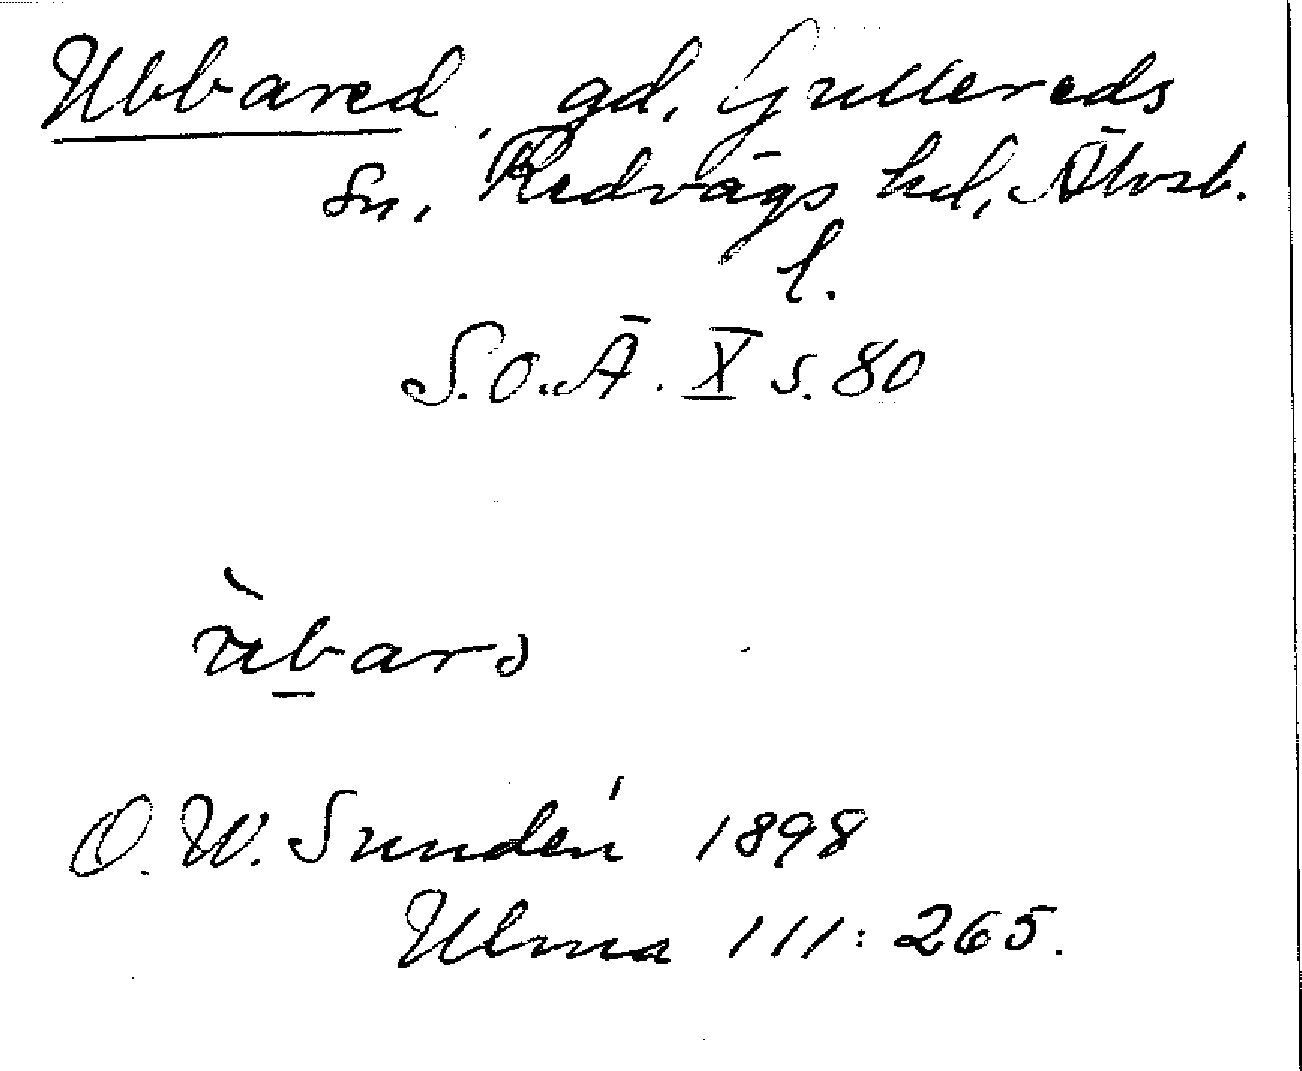 Ubbared, gd, Gullereds
sn, Redvägs hd, Älvsb.
l.
S.O.Ä. X s. 80
O. W. Sundén 1898
Ulma 111: 265.